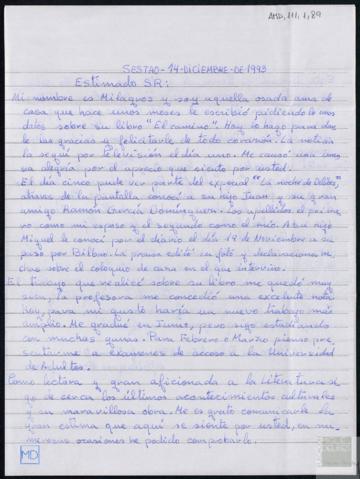 AMD, 111, 1, 89
SESTAO - 14 - DICIEMBRE - DE - 1993
Estimado SR:
Mi nombre es Milagros y soy aquella osada ama de
casa que hace unos meses le escribió, pidiendole unos
datos sobre su libro "El camino". Hoy lo hago para dar
le las gracias y felicitarle de todo corazón. La noticia
la seguí por televisión el día uno. Me causó una inmen
sa alegría por el aprecio que siento por usted.
El día cinco pude ver parte del especial "La noche de Delibes",
através de la pantalla conocí a su hijo Juan y su gran
amigo Ramón García Domínguez. Los apellidos el prime
ro como mi esposo y el segundo como el mío. A su hijo
Miguel le conocí por el diario el día 19 de Noviembre a su
paso por Bilbao. La prensa editó su foto y declaraciones he
chas sobre el coloquio de caza en el que intervino.
El trabajo que realicé sobre su libro me quedó muy
bien, la profesora me concedió una excelente nota
hoy, para mi gusto haría un nuevo trabajo más
amplio. Me gradué en Junio, pero sigo estudiando
con muchas ganas. Para Febrero o Marzo pienso pre
sentarme a exámenes de acceso a la Universidad
de Adultos.
Como lectora y gran aficionada a la Literatura si
go de cerca los últimos acontecimientos culturales
y su maravillosa obra. Me es grato comunicarle la
gran estima que aquí se siente por usted, en nu-
merosas ocasiones he podido comprobarlo.
MD